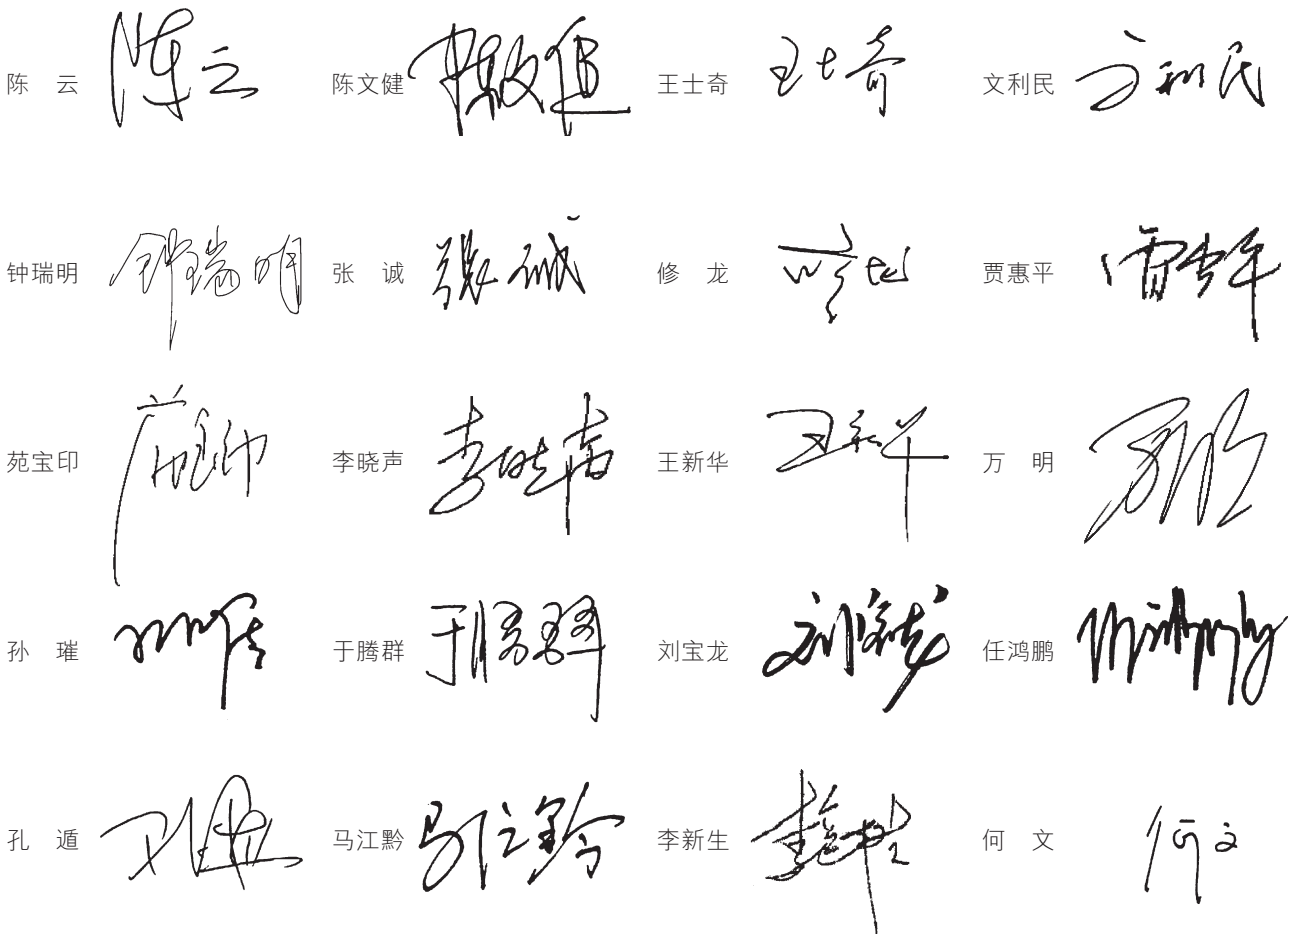 陈　云 陈云 陈文健 陈文健 王士奇 王士奇 文利民 文利民
钟瑞明 钟瑞明 张　诚 张诚 修　龙 修龙 贾惠平 贾惠平
苑宝印 苑宝印 李晓声 李晓声 王新华 王新华 万　明 万明
孙　璀 孙璀 于腾群 于腾群 刘宝龙 刘宝龙 任鸿鹏 任鸿鹏
孔　遁 孔遁 马江黔 马江黔 李新生 李新生 何　文 何文